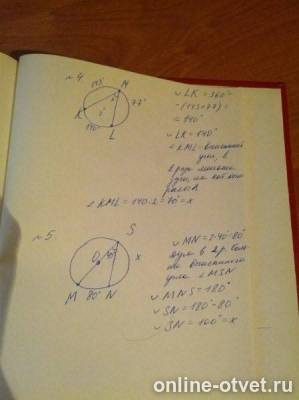 №4
143
N
77°
K
x
140°
L
∪ LK = 360° -
-(143+77) =
= 140°
∪ LK = 140°
∠ KML - вписанный
угол, в
2 раза меньше
дуги, на кот
∠ KML = 140:2 = 70° = x
№5
S
O
40°
x
M
80°
N
∪ MN = 2·40° = 80°
дуга в 2 р. боль
ше вписанного
угла ∠ MSN
∪ MNS = 180°
∪ SN = 180° - 80°
∪ SN = 100° = x
online-otvet.ru